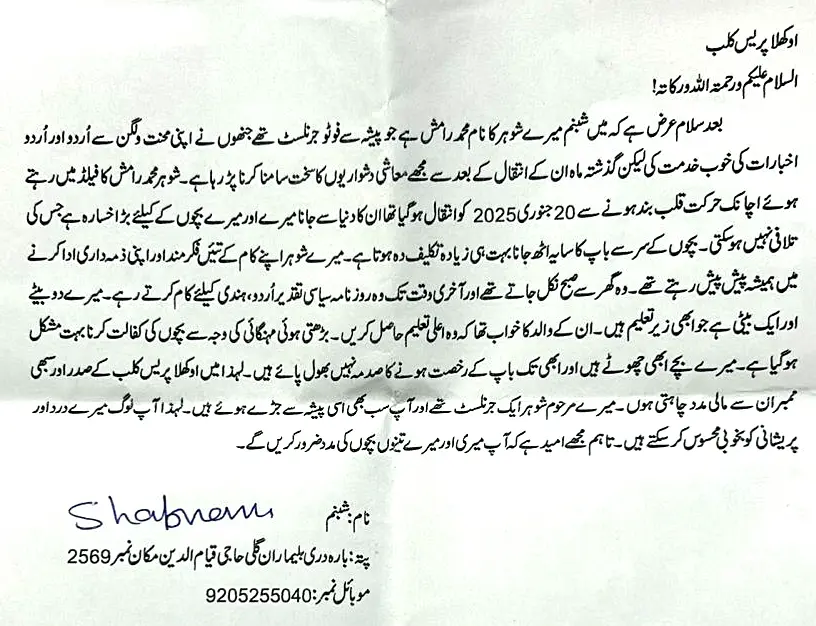 اوکھلا پریس کلب
السلام علیکم ورحمتہ اللہ ورکاتہ!
بعد سلام عرض ہے کہ میں شبنم میرے شوہر کا نام محمد رامش ہے جو پیشہ سے فوٹو جرنلسٹ تھے جنھوں نے اپنی محنت ولگن سے اُردو اور اُردو
اخبارات کی خوب خدمت کی لیکن گذشتہ ماہ ان کے انتقال کے بعد سے مجھے معاشی دشواریوں کا سخت سامنا کرنا پڑ رہا ہے۔ شوہر محمد رامش کا فیلڈ میں رہتے
ہوئے اچانک حرکت قلب بند ہونے سے 20 جنوری 2025 کو انتقال ہوگیا تھا ان کا دنیا سے جانا میرے اور میرے بچوں کے کیلئے بڑا خسارہ ہے جس کی
تلافی نہیں ہوسکتی۔ بچوں کے سر سے باپ کا سایہ اٹھ جانا بہت ہی زیادہ تکلیف دہ ہوتا ہے۔ میرے شوہر اپنے کام کے تئیں فکر مند اور اپنی ذمہ داری ادا کرنے
میں ہمیشہ پیش پیش رہتے تھے۔ وہ گھر سے صبح نکل جاتے تھے اور آخری وقت تک وہ روزنامہ سیاسی تقدیر اُردو، ہندی کیلئے کام کرتے رہے۔ میرے دو بیٹے
اور ایک بیٹی ہے جو ابھی زیر تعلیم ہیں۔ ان کے والد کا خواب تھا کہ وہ اعلیٰ تعلیم حاصل کریں۔ بڑھتی ہوئی مہنگائی کی وجہ سے بچوں کی کفالت کرنا بہت مشکل
ہوگیا ہے۔ میرے بچے ابھی چھوٹے ہیں اور ابھی تک باپ کے رخصت ہونے کا صدمہ نہیں بھول پائے ہیں۔ لہٰذا میں اوکھلا پریس کلب کے صدر اور سبھی
ممبران سے مالی مدد چاہتی ہوں۔ میرے مرحوم شوہر ایک جرنلسٹ تھے اور آپ سب بھی اسی پیشہ سے جڑے ہوئے ہیں۔ لہٰذا آپ لوگ میرے درد اور
پریشانی کو بخوبی محسوس کرسکتے ہیں۔ تاہم مجھے امید ہے کہ آپ میری اور میرے تینوں بچوں کی مدد ضرور کریں گے۔
نام: شبنم Shabnam
پتہ: بارہ دری بلیماران گلی حاجی قیام الدین مکان نمبر 2569
موبائل نمبر: 9205255040